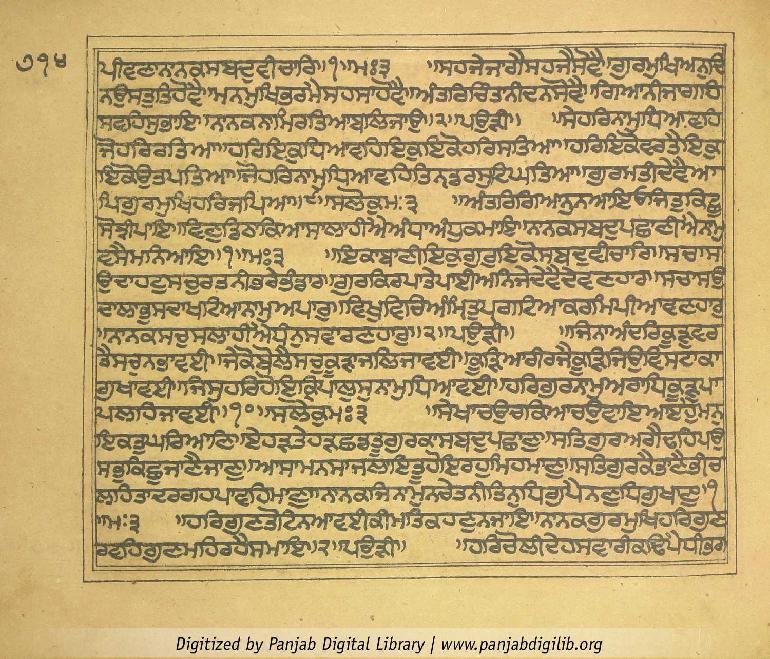 ੭੧੪
ਪੀਵਣਾਨਾਨਕਸਬਦੁਵੀਚਾਰਿ॥੧॥ਮਃ੩ ॥ਸਹਜੇਜਾਗੈਸਹਜੇਸੋਵੈ॥ਗੁਰਮੁਖਿਅਨਦਿ
ਨਉਸਤਤਿਹੋਵੈ॥ਮਨਮੁਖਿਭਰਮੈਸਹਸਾਹੋਵੈ॥ਅੰਤਰਿਚਿੰਤਨੀਦਨਸੋਵੈ॥ਗਿਆਨੀਜਾਗਹਿ
ਸਵਹਿਸੁਭਾਇ॥ਨਾਨਕਨਾਮਿਰਤਿਆਬਲਿਜਾਉ॥੨॥ਪਉੜੀ॥ ਸੇਹਰਿਨਾਮੁਧਿਆਵਹਿ
ਜੋਹਰਿਰਤਿਆ॥ਹਰਿਇਕੁਧਿਆਵਹਿਇਕੁਇਕੋਹਰਿਸਤਿਆ॥ਹਰਿਇਕੋਵਰਤੈਇਕੁ
ਇਕੋਉਤਪਤਿਆ॥ਜੋਹਰਿਨਾਮੁਧਿਆਵਹਿਤਿਨਡਰੁਸਟਿਘਤਿਆ॥ਗੁਰਮਤੀਦੇਵੈਆ
ਪਿਗੁਰਮੁਖਿਹਰਿਜਪਿਆ॥੯॥ਸਲੋਕੁਮਃ੩ ॥ਅੰਤਰਿਗਿਆਨੁਨਆਇਓਜਿਤੁਕਿਛੁ
ਸੋਝੀਪਾਇ॥ਵਿਣੁਡਿਠਾਕਿਆਸਾਲਾਹੀਐਅੰਧਾਅੰਧੁਕਮਾਇ॥ਨਾਨਕਸਬਦੁਪਛਾਣੀਐਨਾਮੁ
ਵਸੈਮਨਿਆਇ॥੧॥ਮਃ੩ ॥ਇਕਾਬਾਣੀਇਕੁਗੁਰੁਇਕੋਸਬਦੁਵੀਚਾਰਿ॥ਸਚਾਸ
ਉਦਾਹਟੁਸਚੁਰਤਨੀਭਰੇਭੰਡਾਰ॥ਗੁਰਕਿਰਪਾਤੇਪਾਈਅਨਿਜੇਦੇਵੈਦੇਵਣਹਾਰੁ॥ਸਚਾਸਉ
ਦਾਲਾਭੁਸਦਾਖਟਿਆਨਾਮੁਅਪਾਰੁ॥ਵਿਖੁਵਿਚਿਅੰਮ੍ਰਿਤੁਪ੍ਰਗਟਿਆਕਰਮਿਪੀਆਵਣਹਾਰੁ
॥ਨਾਨਕਸਚੁਸਲਾਹੀਐਧੰਨੁਸਵਾਰਣਹਾਰੁ॥੨॥ਪਉੜੀ॥ ॥ਜਿਨਾਅੰਦਰਿਕੂੜੁਵਰ
ਤੈਸਚੁਨਭਾਵਈ॥ਜੇਕੋਬੋਲੈਸਚੁਕੂੜਾਜਲਿਜਾਵਈ॥ਕੂੜਿਆਰੀਰਜੈਕੂੜਿਜਿਉਵਿਸਟਾਕਾ
ਗੁਖਾਵਈ॥ਜਿਸੁਹਰਿਹੋਇਕ੍ਰਿਪਾਲੁਸੁਨਾਮੁਧਿਆਵਈ॥ਹਰਿਗੁਰਨਾਮੁਅਰਾਧਿਕੂੜੁਪਾ
ਪੁਲਹਿਜਾਵਈ॥੧੦॥ਸਲੋਕੁਮਃ੩ ॥ਸੇਖਾਚਉਚਕਿਆਚਉਵਾਇਆਏਹੁਮਨੁ
ਇਕਤੁਘਰਿਆਣਿ॥ਏਹੜਤੇਹੜਛਡਤੂਗੁਰਕਾਸਬਦੁਪਛਾਣੁ॥ਸਤਿਗੁਰਅਗੈਢਹਿਪਉ
ਸਭੁਕਿਛੁਜਾਣੈਜਾਣੁ॥ਆਸਾਮਨਸਾਜਲਾਇਤੂਹੋਇਰਹੁਮਿਹਮਾਣੁ॥ਸਤਿਗੁਰਕੈਭਾਣੈਭੀਚ
ਲਹਿਤਾਦਰਗਹਪਾਵਹਿਮਾਣੁ॥ਨਾਨਕਜਿਨਾਮੁਨਚੇਤਨੀਤਿਨੁਧਿਗੁਪੈਨਣੁਧਿਗੁਖਾਣੁ॥੧
॥ਮਃ੩ ॥ਹਰਿਗੁਣਤੋਟਿਨਆਵਈਕੀਮਤਿਕਹਣੁਨਜਾਇ॥ਨਾਨਕਗੁਰਮੁਖਿਹਰਿਗੁਣ
ਰਵਹਿਗੁਣਮਹਿਰਹੈਸਮਾਇ॥੨॥ਪਉੜੀ॥ ॥ਹਰਿਚੋਲੀਦੇਹਸਵਾਰੀਕਢਿਪੈਧੀਭਗ
Digitized by Panjab Digital Library | www.panjabdigilib.org